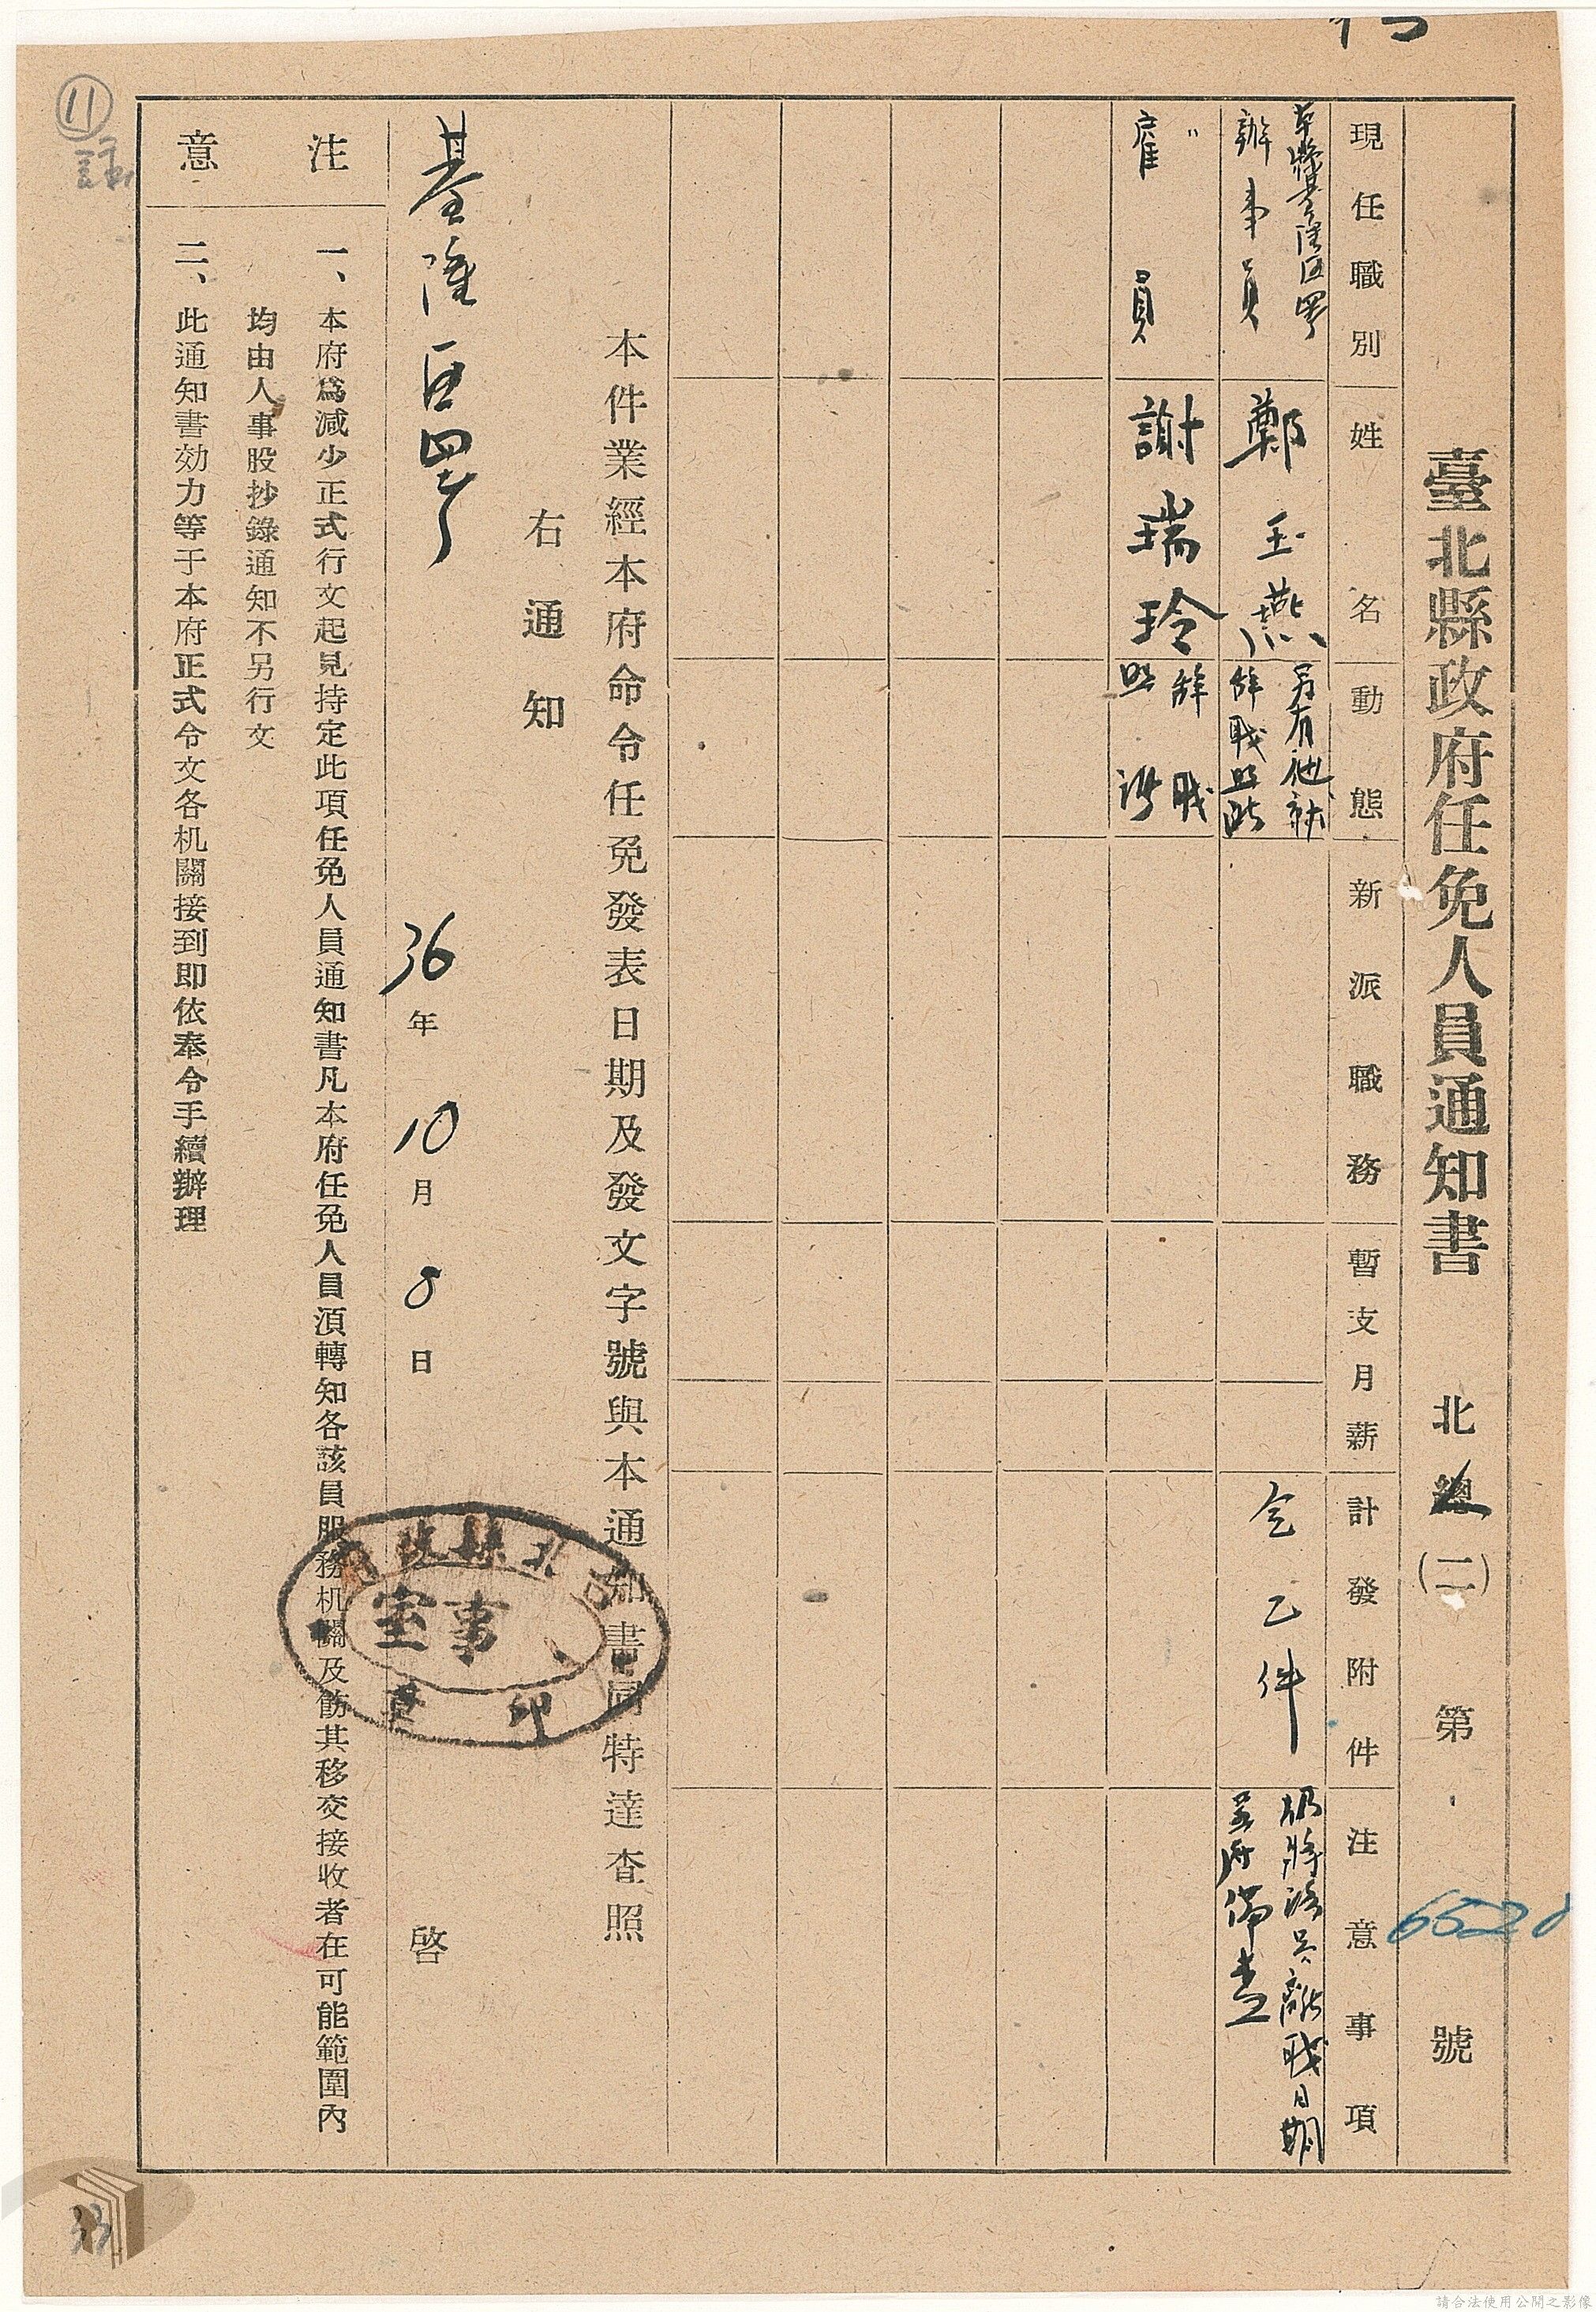 臺北縣政府任免人員通知書 北總(二)第 6528 號
現任職別 姓名 動態 新派職務 暫支月薪 計發附件 注意事項
本縣基隆區署
辦事員 鄭玉燕 另有他就
辭職照准 令乙件 仍將該員離職日期
呈府備查
〃
雇員 謝瑞玲 辭職
照准
本件業經本府命令任免發表日期及發文字號與本通知書同特達查照
右通知
基隆區署
36年10月8日 啓
台北縣政府
人事室
印章
注意
一、本府為減少正式行文起見持定此項任免人員通知書凡本府任免人員湏轉知各該員服務机關及飭其移交接收者在可能範圍內
均由人事股抄錄通知不另行文
二、此通知書効力等于本府正式令文各机關接到即依奉令手續辦理
11
33
請合法使用公開之影像